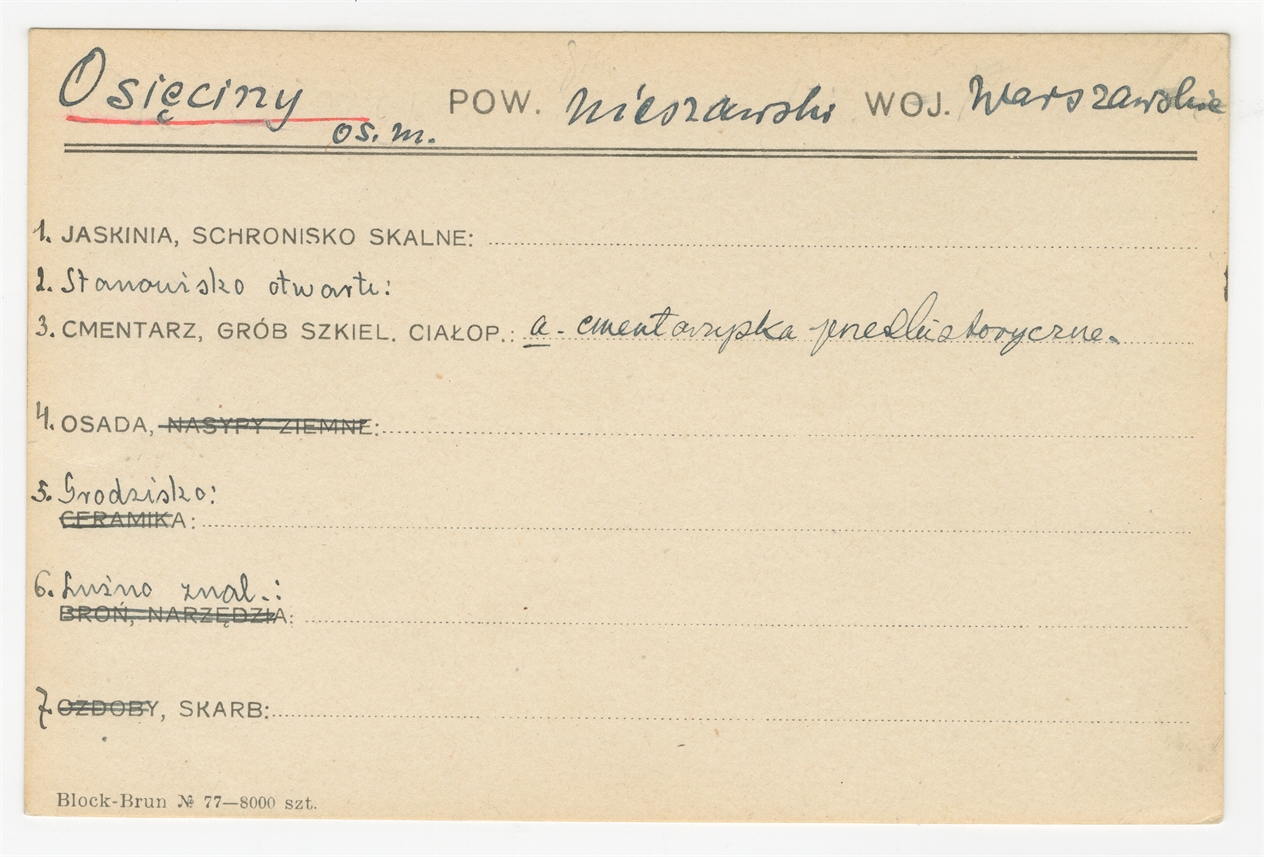 Osięciny POW. Nieszawski WOJ. Warszawskie
os. m.
1. JASKINIA, SCHRONISKO SKALNE:
2. Stanowisko otwarte:
3. CMENTARZ, GRÓB SZKIEL. CIAŁOP.: a - cmentarzyska przedhistoryczne.
4. OSADA, NASYPY ZIEMNE:
5. Grodzisko:
CERAMIKA:
6. Luźno znal.:
BROŃ, NARZĘDZIA:
7. OZDOBY, SKARB:
Block-Brun № 77—8000 szt.